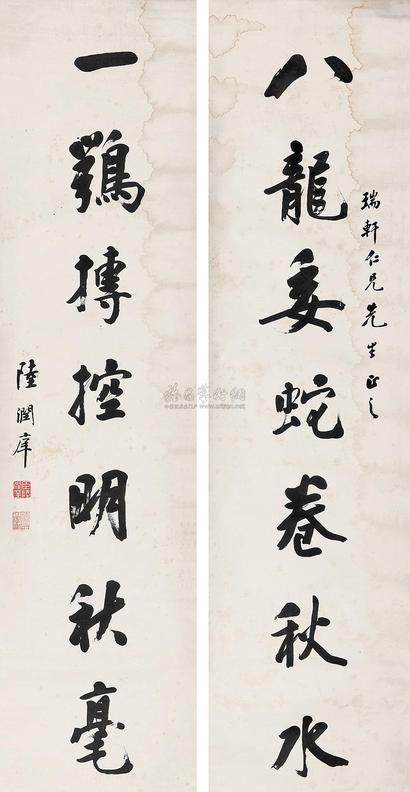 八龍委蛇卷秋水
瑞軒仁兄先生正之
一鶚摶控明秋毫
陸潤庠